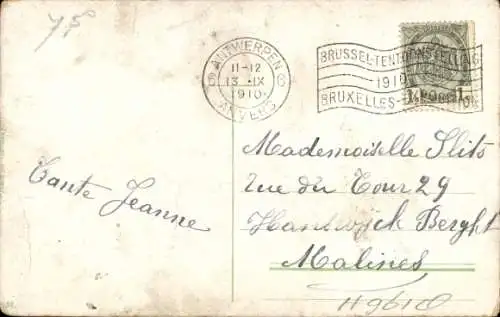 ANTWERPEN
11-12
13 IX
1910
ANVERS
BRUSSEL-TENTOONSTELLING
1910
BRUXELLES-EXPOSITION
1
Mademoiselle Slits
rue du Tour 29
Tante Jeanne
Berght
Malines